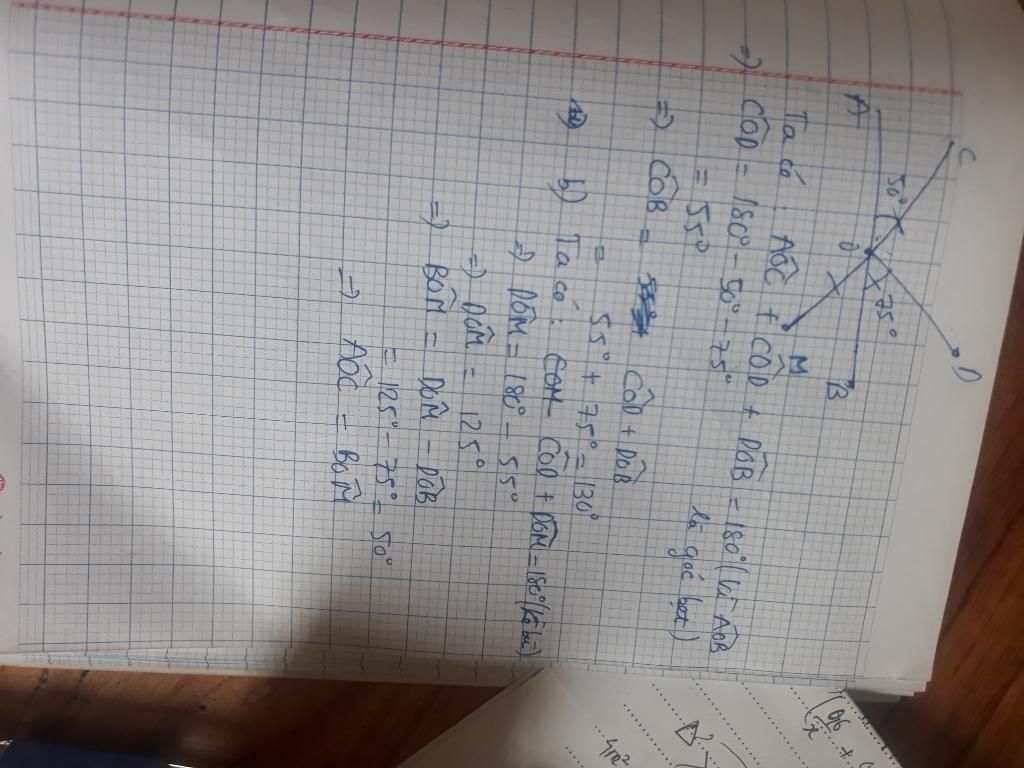 C
D
A
50°
O
75°
B
M
Ta có : AÔC + CÔD + DÔB = 180° (vì AÔB
là góc bẹt)
=) CÔD = 180° - 50° - 75°
= 55°
=) CÔB = CÔD + DÔB
= 55° + 75° = 130°
b) Ta có : COM = CÔD + DÔM = 180° (kề bù)
=) DÔM = 180° - 55°
=) DÔM = 125°
=) BÔM = DÔM - DÔB
= 125° - 75° = 50°
=) AÔC = BÔM